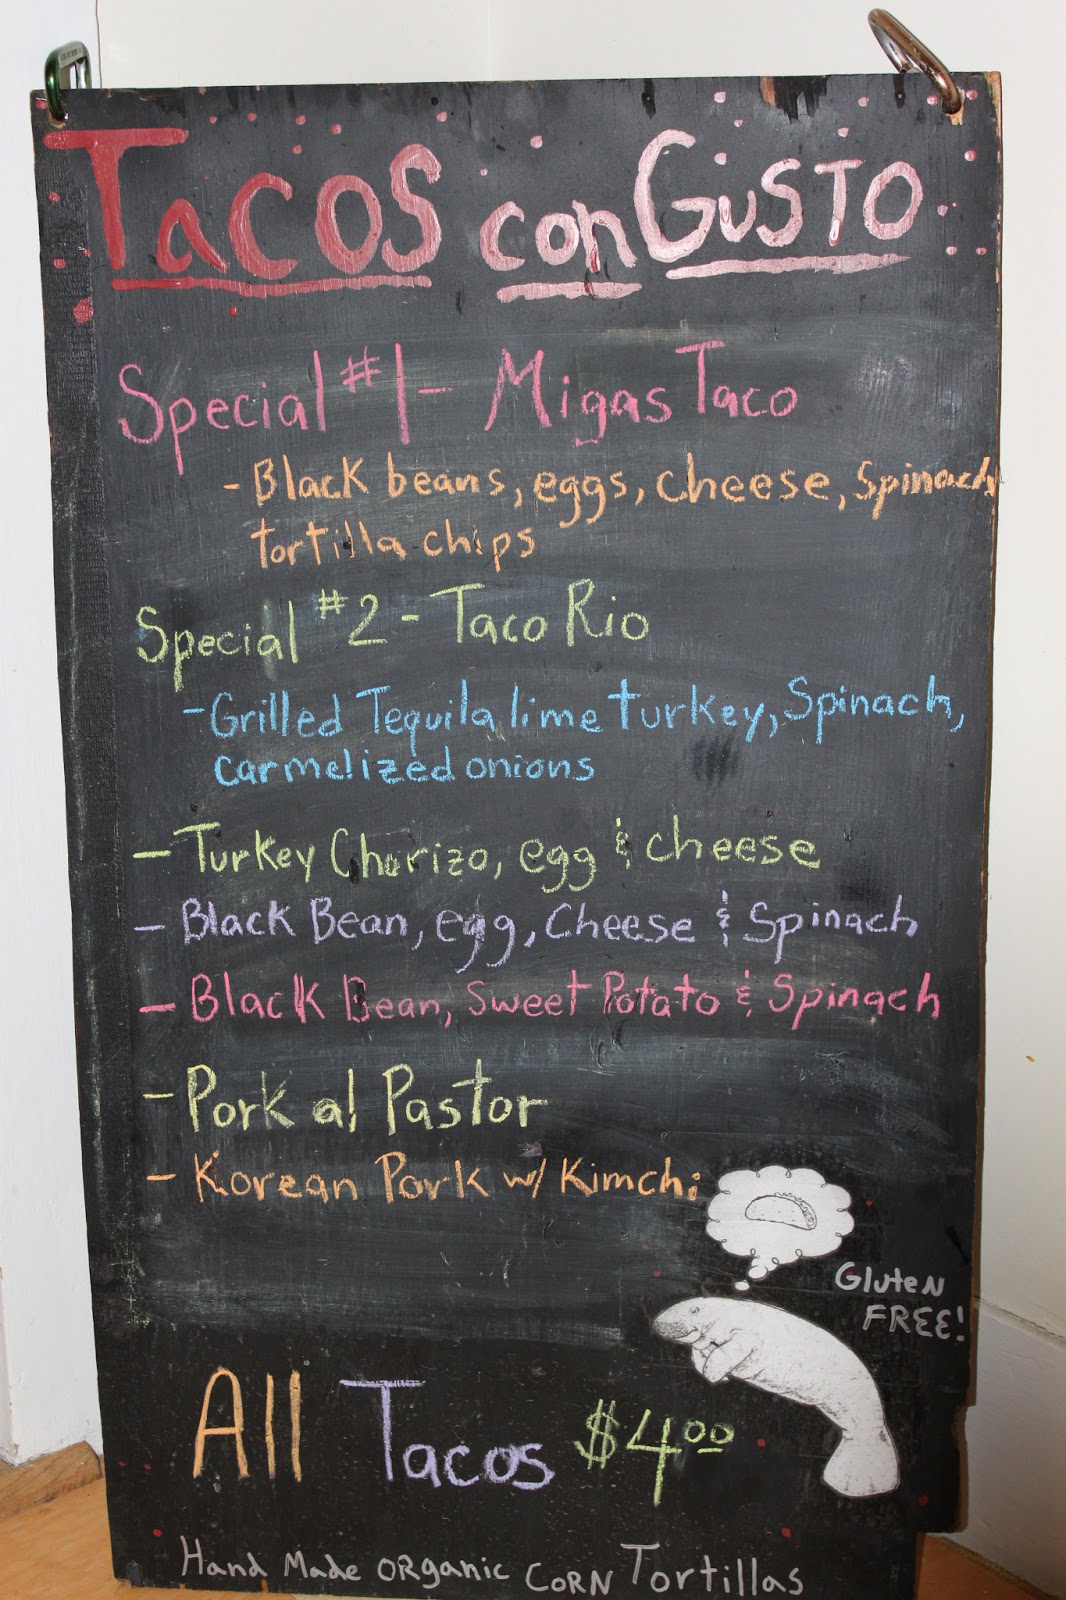 Tacos con Gusto
Special #1 - Migas Taco
- Black beans, eggs, cheese, Spinach
tortilla chips
Special #2 - Taco Rio
- Grilled Tequila lime turkey, Spinach,
carmelized onions
- Turkey Chorizo, egg & cheese
- Black Bean, egg, Cheese & Spinach
- Black Bean, Sweet Potato & Spinach
- Pork al Pastor
- Korean Pork w/ Kimchi
Gluten
FREE!
All Tacos $4.00
Hand Made ORganic CORN Tortillas